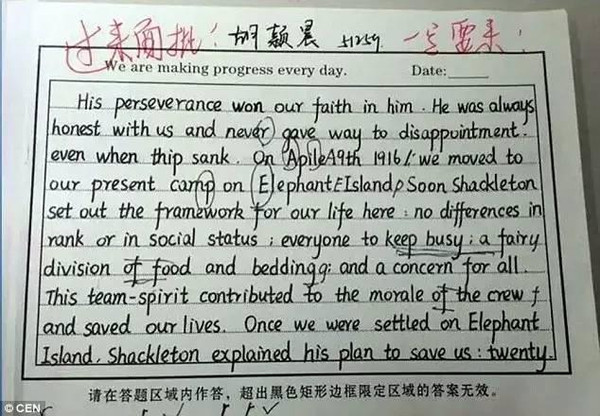 过来面批! 胡颖晨 51259 一定要来!
We are making progress every day. Date:
His perseverance won our faith in him. He was always
honest with us and never gave way to disappointment.
even when thip sank. On Apile A9th 1916, we moved to
our present camp on ElephantEIsland Soon Shackleton
set out the framework for our life here: no differences in
rank or in social status; everyone to keep busy; a fairy
division of food and beddingg; and a concern for all.
This team-spirit contributed to the morale of the crew
and saved our lives. Once we were settled on Elephant
Island, Shackleton explained his plan to save us: twenty-
请在答题区域内作答,超出黑色矩形边框限定区域的答案无效。
© CEN